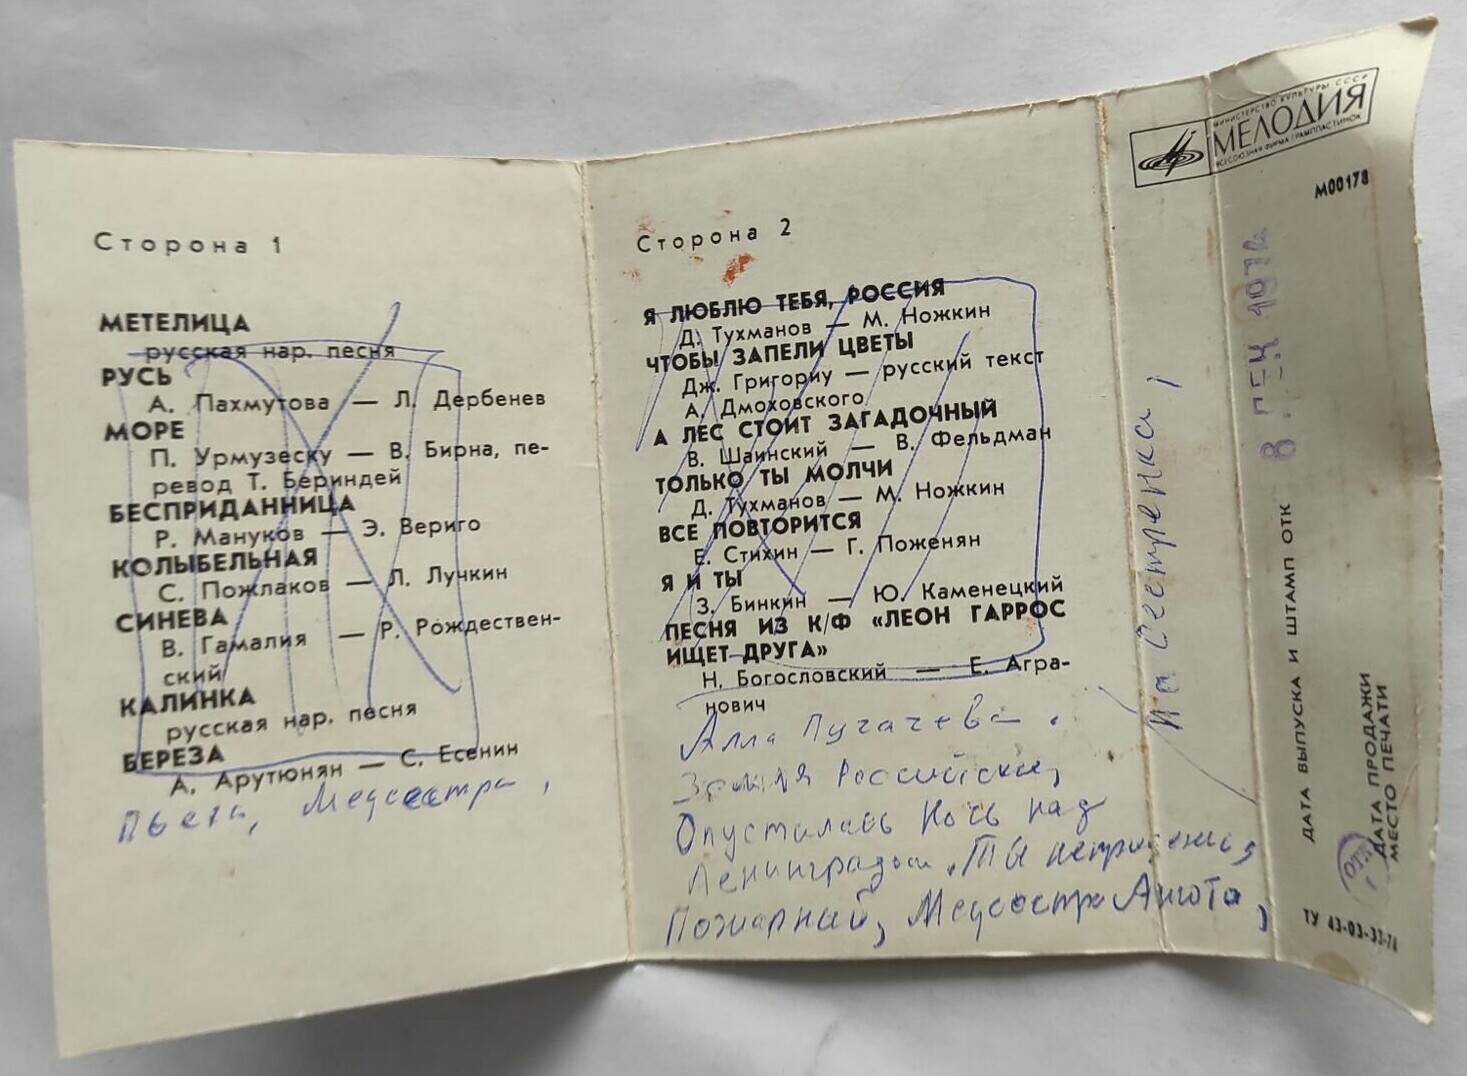 Сторона 1
МЕТЕЛИЦА
русская нар. песня
РУСЬ
А. Пахмутова — Л. Дербенев
МОРЕ
П. Урмузеску — В. Бирна, пе-
ревод Т. Бериндей
БЕСПРИДАННИЦА
Р. Мануков — Э. Вериго
КОЛЫБЕЛЬНАЯ
С. Пожлаков — Л. Лучкин
СИНЕВА
В. Гамалия — Р. Рождествен-
ский
КАЛИНКА
русская нар. песня
БЕРЕЗА
А. Арутюнян — С. Есенин
Пьета, Медсестра,
Сторона 2
Я ЛЮБЛЮ ТЕБЯ, РОССИЯ
Д. Тухманов — М. Ножкин
ЧТОБЫ ЗАПЕЛИ ЦВЕТЫ
Дж. Григориу — русский текст
А. Дмоховского
А ЛЕС СТОИТ ЗАГАДОЧНЫЙ
В. Шаинский — В. Фельдман
ТОЛЬКО ТЫ МОЛЧИ
Д. Тухманов — М. Ножкин
ВСЕ ПОВТОРИТСЯ
Е. Стихин — Г. Поженян
Я И ТЫ
З. Бинкин — Ю. Каменецкий
ПЕСНЯ ИЗ К/Ф «ЛЕОН ГАРРОС
ИЩЕТ ДРУГА»
Н. Богословский — Е. Агра-
нович
Алла Пугачева.
Земля Российская,
Опустилась Ночь над
Ленинградом. Ты
Пожарный, Медсестра Анюта,
На Сестренка,
МИНИСТЕРСТВО КУЛЬТУРЫ СССР
МЕЛОДИЯ
ВСЕСОЮЗНАЯ ФИРМА ГРАМПЛАСТИНОК
М00178
ДАТА ВЫПУСКА И ШТАМП ОТК
ДАТА ПРОДАЖИ
МЕСТО ПЕЧАТИ
ОТК
ТУ 43-03-33-74